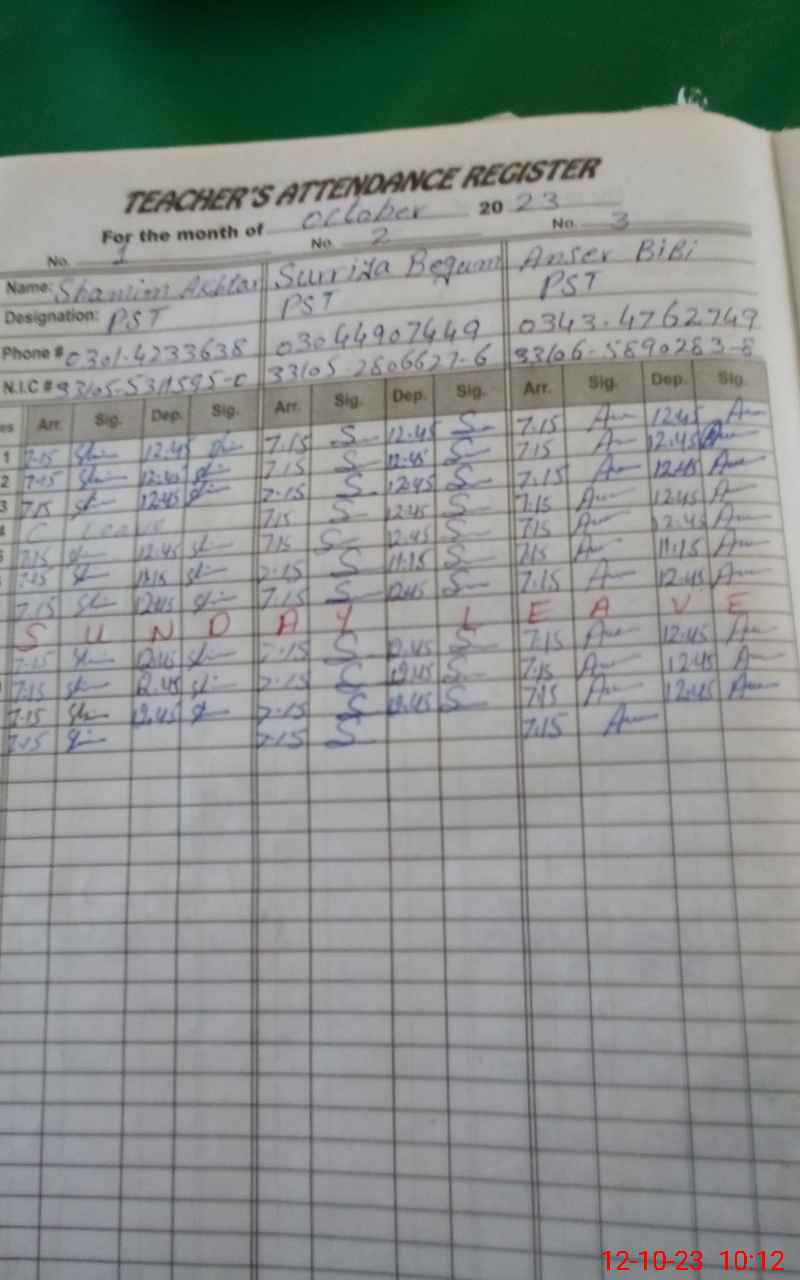 TEACHER'S ATTENDANCE REGISTER
For the month of October 20 23
No. 1 No. 2 No. 3
Name: Shamim Akhtar Surriya Begum Anser BiBi
Designation: PST PST PST
Phone # 0301-4233638 03044907449 0343-4762749
N.I.C # 33105-2806627-6 33106-5890283-8
es Arr. Sig. Dep. Sig. Arr. Sig. Dep. Sig. Arr. Sig. Dep. Sig.
1 7.15 12.45 7.15 S 12.45 S 7.15 12.45
2 7.15 12.45 7.15 S 12.45 S 7.15 12.45
3 7.15 12.45 7.15 S 12.45 S 7.15 12.45
C Leave 7.15 S 12.45 S 7.15 12.45
7.15 12.45 7.15 S 12.45 S 7.15 12.45
7.15 11.15 7.15 S 11.15 S 7.15 11.15
7.15 12.45 7.15 S 12.45 S 7.15 12.45
S U N D A Y L E A V E
7.15 12.45 7.15 S 12.45 S 7.15 12.45
7.15 12.45 7.15 S 12.45 S 7.15 12.45
7.15 12.45 7.15 S 12.45 S 7.15 12.45
7.15 7.15 S 7.15
12-10-23 10:12